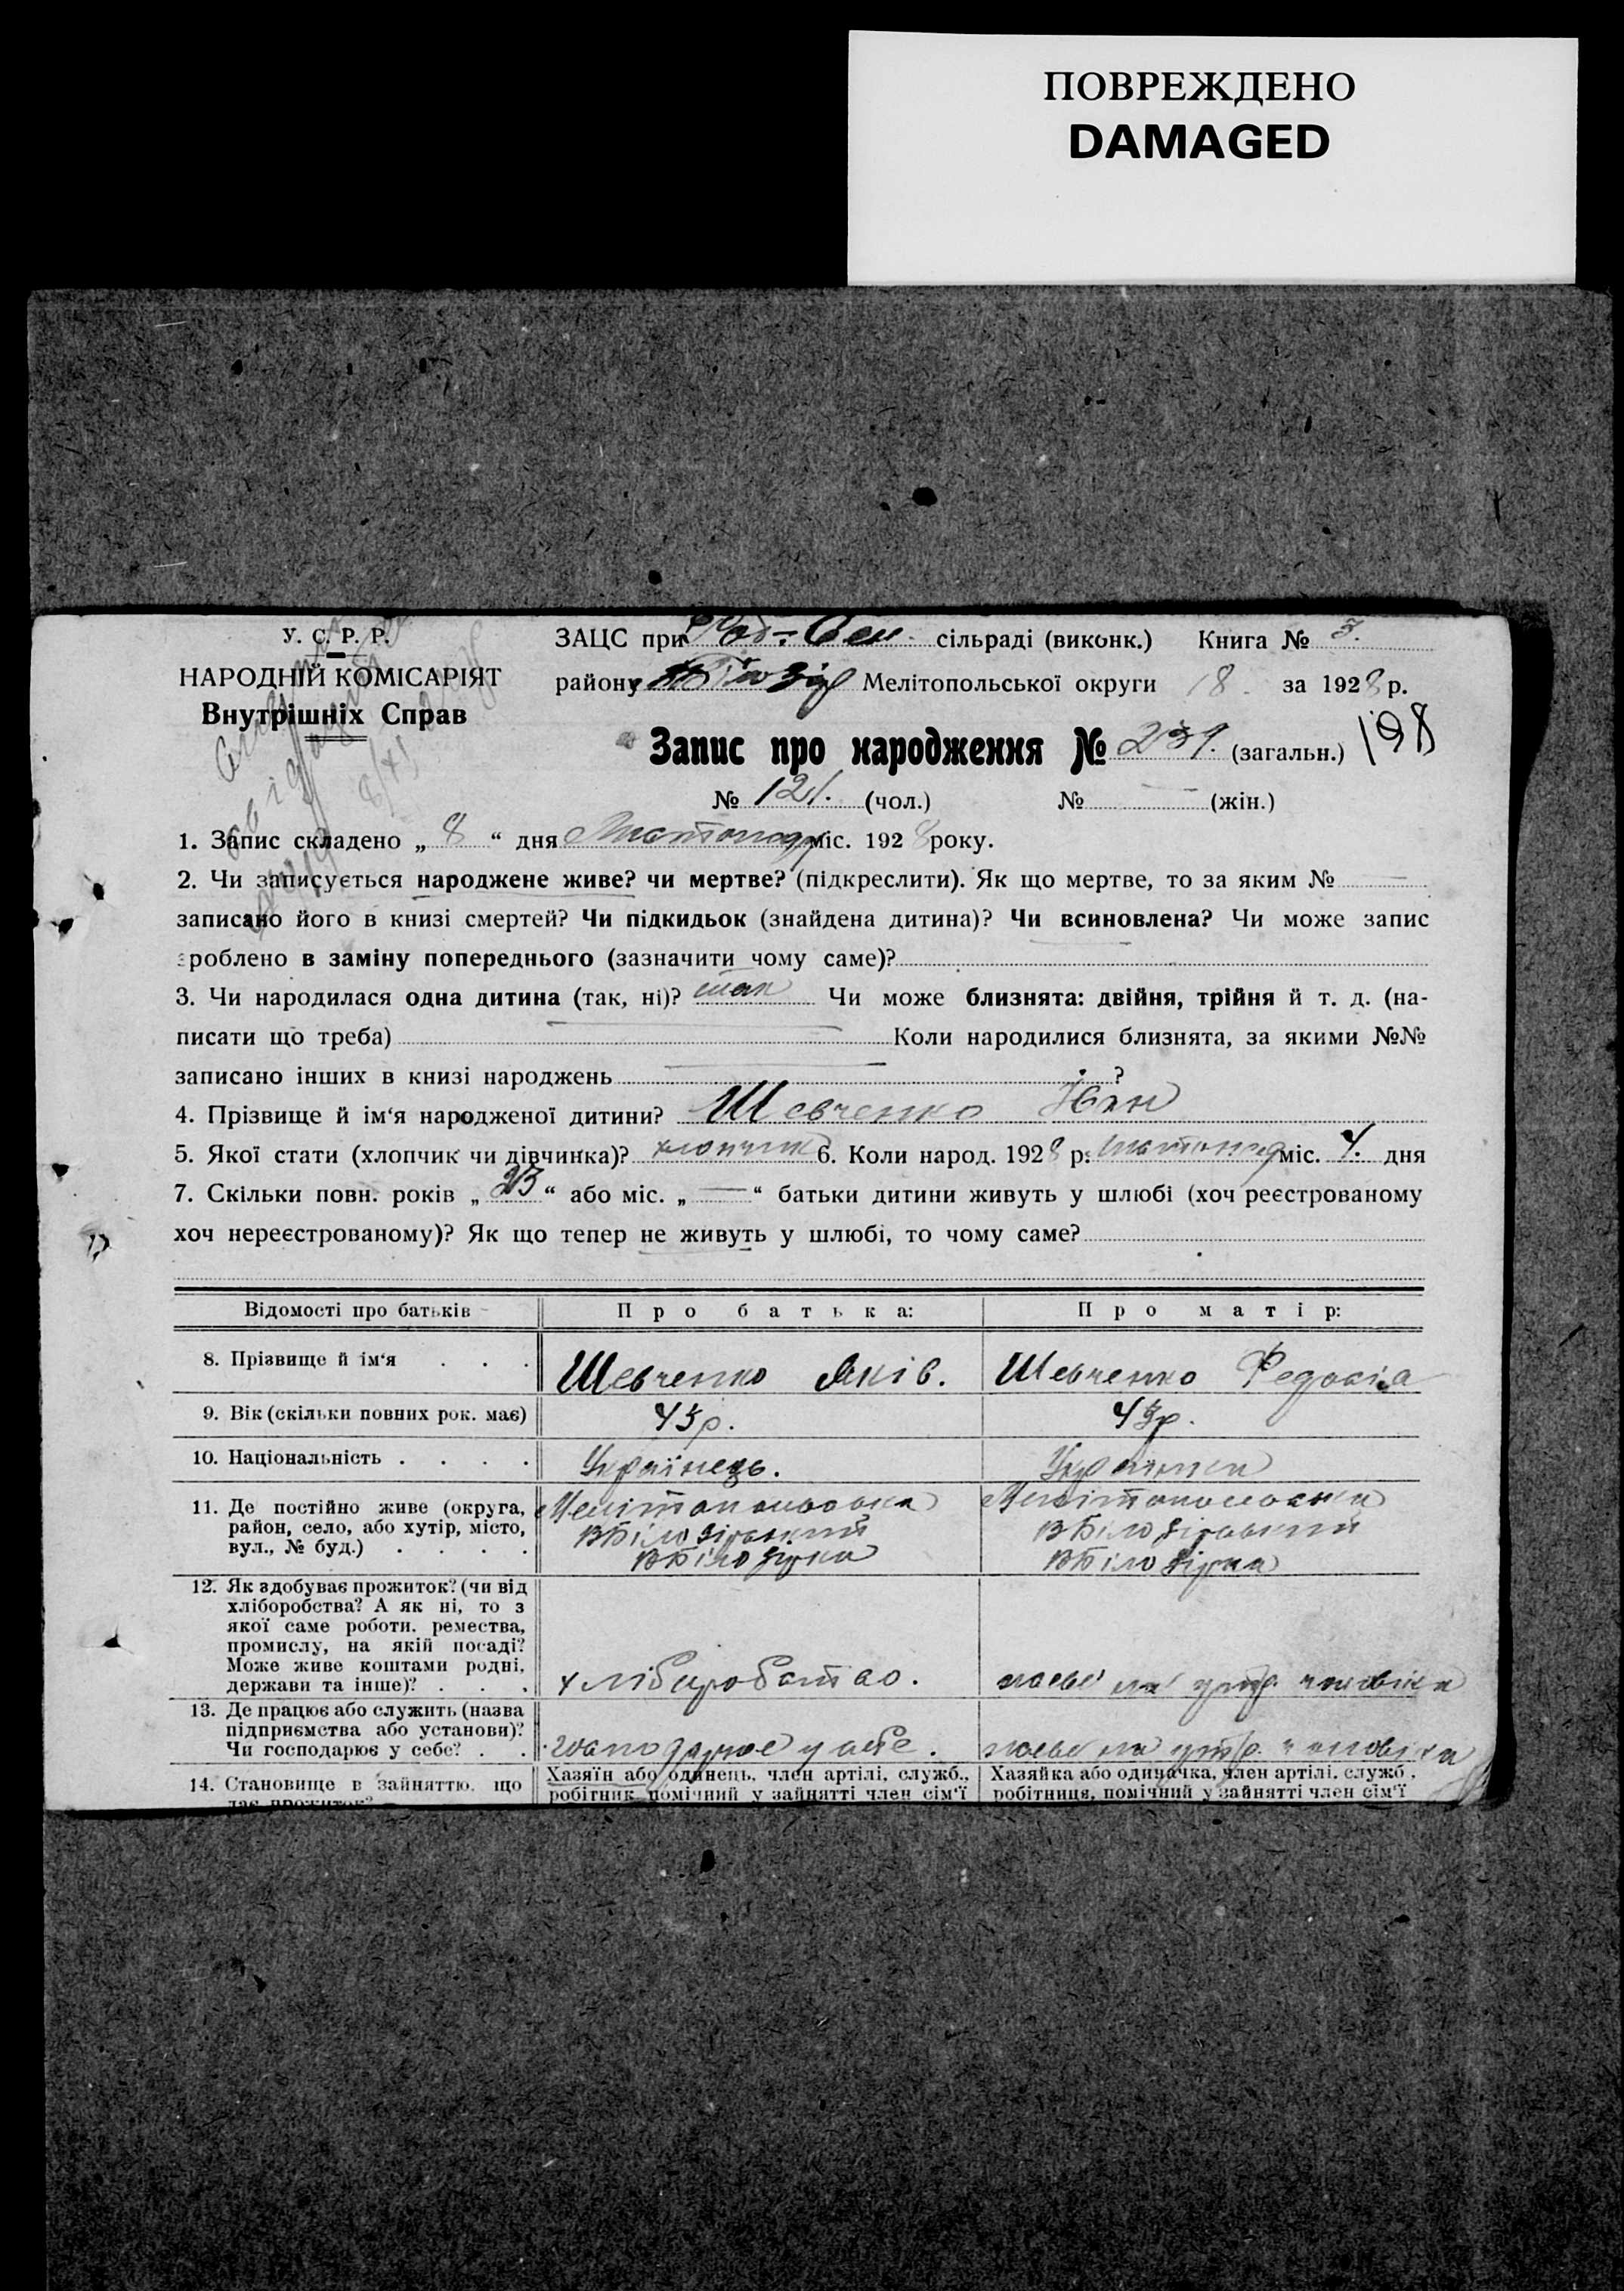 ПОВРЕЖДЕНО
DAMAGED
У. С. Р. Р.
НАРОДНІЙ КОМІСАРІЯТ
Внутрішніх Справ
ЗАЦС при сільраді (виконк.) Книга № 3.
району Мелітопольської округи 18. за 1928 р.
Запис про народження № 239. (загальн.) 198
№ 121. (чол.) № — (жін.)
1. Запис складено „ 8 “ дня Листопаду міс. 1928 року.
2. Чи записується народжене живе? чи мертве? (підкреслити). Як що мертве, то за яким № —
записано його в книзі смертей? Чи підкидьок (знайдена дитина)? Чи всиновлена? Чи може запис
зроблено в заміну попереднього (зазначити чому саме)?
3. Чи народилася одна дитина (так, ні)? так Чи може близнята: двійня, трійня й т. д. (на-
писати що треба) — Коли народилися близнята, за якими №№
записано інших в книзі народжень — ?
4. Прізвище й ім‘я народженої дитини? Шевченко Іван
5. Якої стати (хлопчик чи дівчинка)? хлопчик 6. Коли народ. 1928 р. листопад міс. 4. дня
7. Скільки повн. років „ 23 “ або міс. „ — “ батьки дитини живуть у шлюбі (хоч реєстрованому
хоч нереєстрованому)? Як що тепер не живуть у шлюбі, то чому саме?
Відомості про батьків Про батька: Про матір:
8. Прізвище й ім‘я . . . Шевченко Яків. Шевченко Федосія
9. Вік (скільки повних рок. має) 43 р. 43 р.
10. Національність . . . . Українець. Українка
11. Де постійно живе (округа,
район, село, або хутір, місто,
вул., № буд.) . . . .
Мелітопольська
ВБілозірський
ВБілозірка
Мелітопольська
ВБілозірський
ВБілозірка
12. Як здобуває прожиток? (чи від
хліборобства? А як ні, то з
якої саме роботи. ремества,
промислу, на якій посаді?
Може живе коштами родні,
держави та інше)? . . .
хліборобство.
на утр. чоловіка
13. Де працює або служить (назва
підприємства або установи)?
Чи господарює у себе? . .
господарює у себе.
на утр. чоловіка
14. Становище в зайняттю, що
дає прожиток?
Хазяїн або одинець, член артілі, служб.,
робітник, помічний у зайнятті член сім‘ї
Хазяйка або одиначка, член артілі, служб.,
робітниця, помічний у зайнятті член сім‘ї